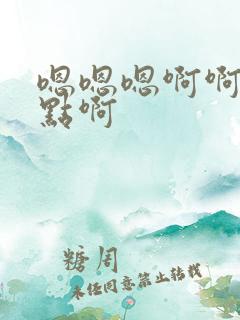 嗯嗯嗯啊啊
點啊
糖周
未经同意禁止转载